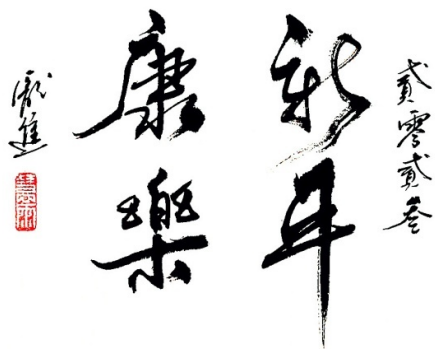 貳零貳叁
新年
康樂